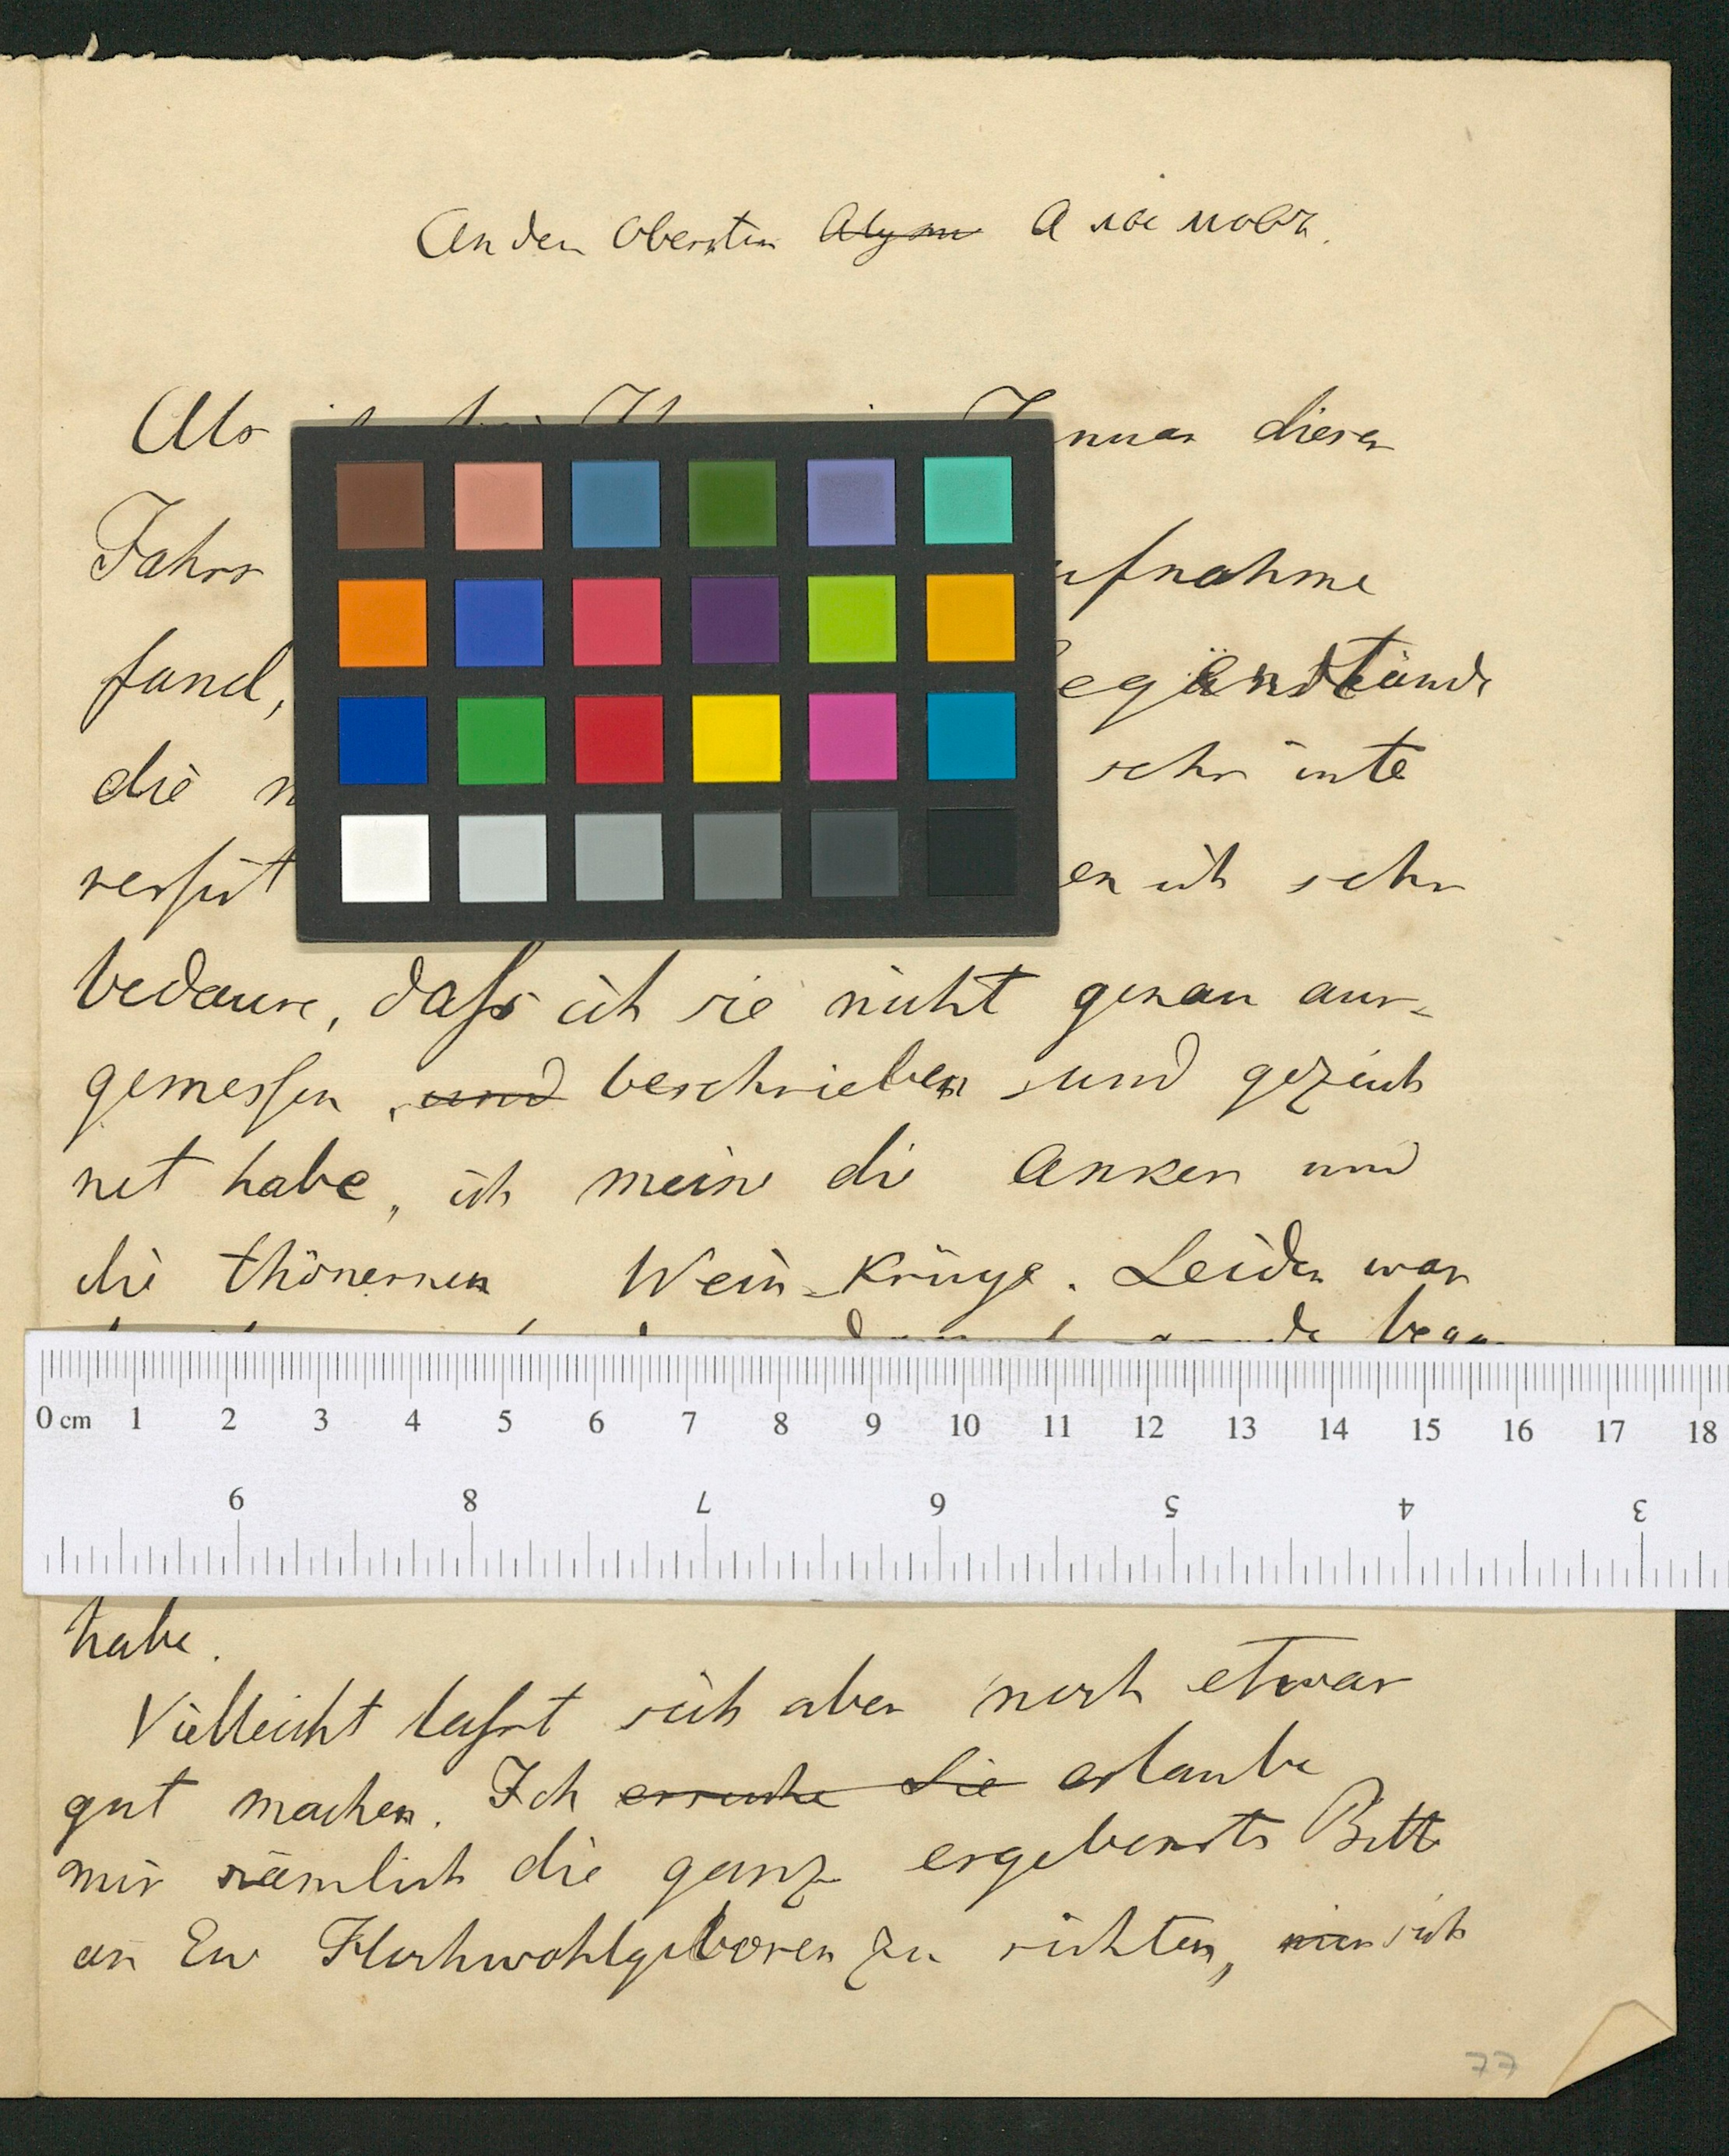 An den Obersten Alymo Алымовъ.
Als nuar dieses
Jahrs ufnahme
fand, egenstände
die sehr inte
en ich sehr
bedaure, dass ich sie nicht genau aus-
gemessen, und beschrieben und gezeich
net habe, ich meine die Anker und
die thönernen Wein-Krüge. Leider war
0 cm 1 2 3 4 5 6 7 8 9 10 11 12 13 14 15 16 17 18
9 8 7 6 5 4 3
habe.
Vielleicht lasst sich aber noch etwas
gut machen. Ich ersuche Sie erlaube
mir nämlich die ganz ergebenste Bitte
an Ew Hochwohlgeboren zu richten, sich
77